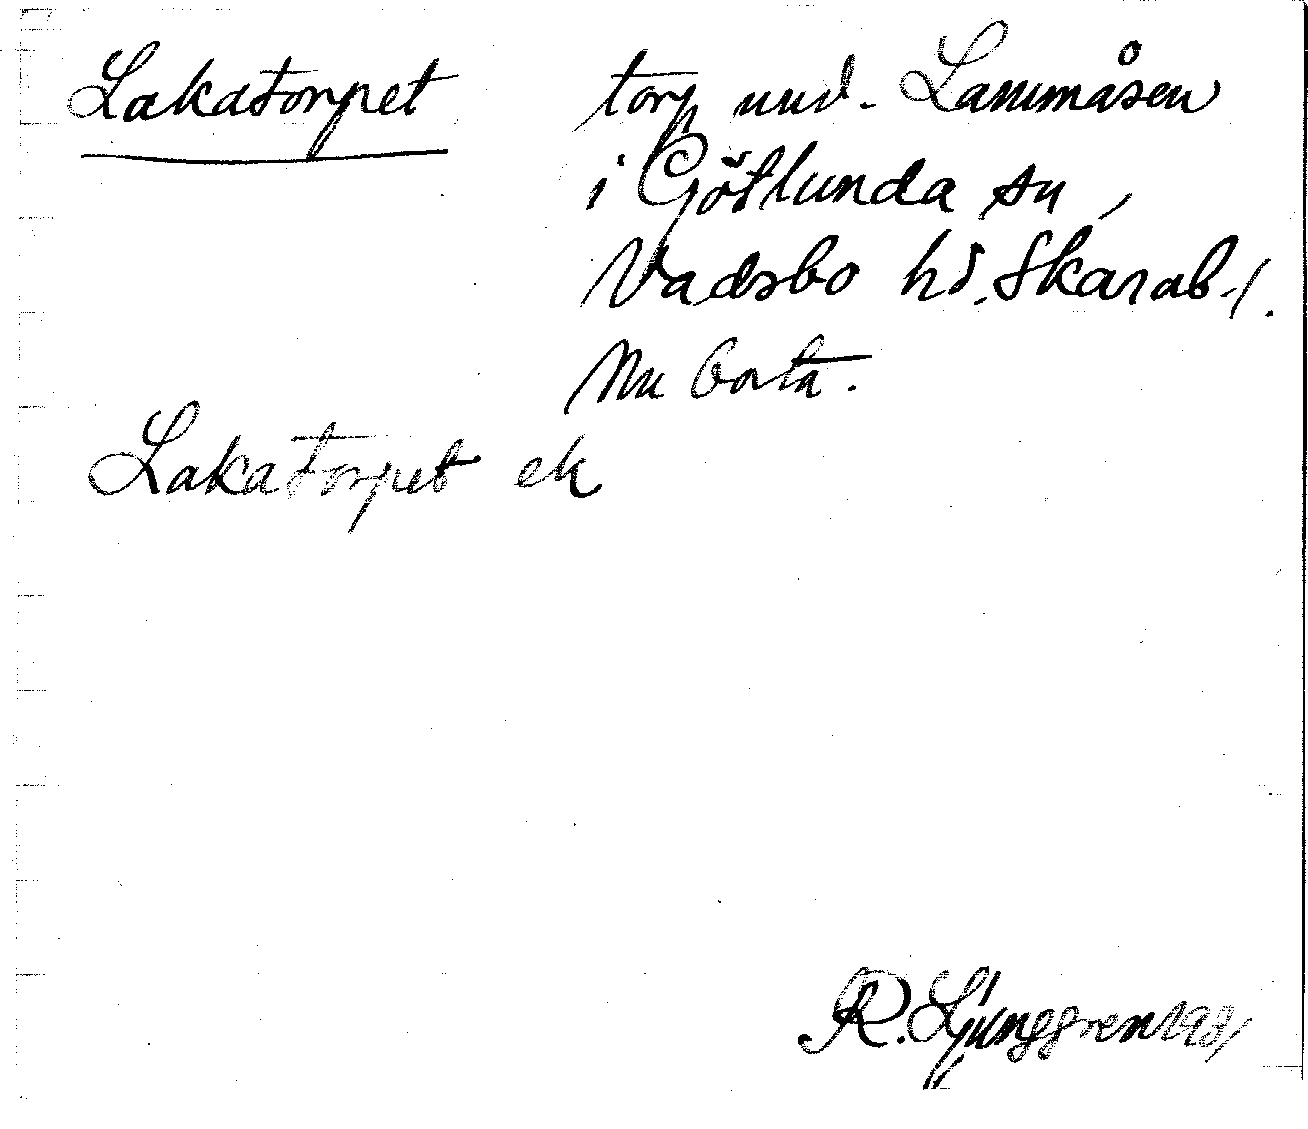 Lakatorpet torp und. Lammåsen
i Götlunda sn,
Vadsbo hd. Skarab. l.
Nu borta.
Lakatorpet ek
R. Ljunggren